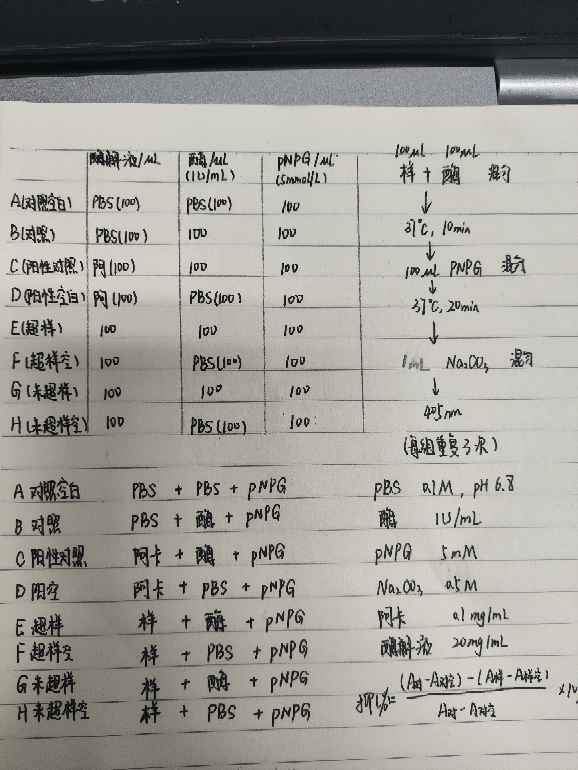 酶解液/μL 酶/μL (1U/mL) pNPG/μL (5mmol/L)
A(对照空白) PBS(100) PBS(100) 100
B(对照) PBS(100) 100 100
C(阳性对照) 阿(100) 100 100
D(阳性空白) 阿(100) PBS(100) 100
E(超样) 100 100 100
F(超样空) 100 PBS(100) 100
G(未超样) 100 100 100
H(未超样空) 100 PBS(100) 100
100μL 100μL
样 + 酶 混匀
↓
37℃, 10min
↓
100μL PNPG 混匀
↓
37℃, 20min
↓
1mL Na₂CO₃ 混匀
↓
405nm
(每组重复3次)
A 对照空白 PBS + PBS + pNPG
B 对照 PBS + 酶 + pNPG
C 阳性对照 阿卡 + 酶 + pNPG
D 阳空 阿卡 + PBS + pNPG
E 超样 样 + 酶 + pNPG
F 超样空 样 + PBS + pNPG
G 未超样 样 + 酶 + pNPG
H 未超样空 样 + PBS + pNPG
pBS 0.1M, pH 6.8
酶 1U/mL
pNPG 5mM
Na₂CO₃ 0.5M
阿卡 0.1mg/mL
酶解液 20mg/mL
抑%= (A对-A对空)-(A样-A样空) / A对-A对空